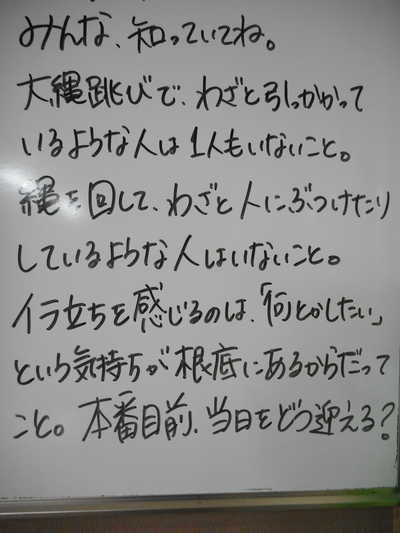 みんな、知っていてね。
大縄跳びで、わざと引っかかって
いるような人は1人もいないこと。
縄を回して、わざと人にぶつけたり
しているような人はいないこと。
イラ立ちを感じるのは、「何とかしたい」
という気持ちが根底にあるからだって
こと。本番目前、当日をどう迎える?